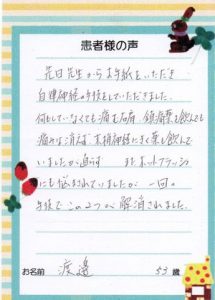 患者様の声
先日先生からお手紙をいただき
自律神経の手技をしていただきました。
何もしていなくても痛む右肩、鎮痛薬を飲んでも
痛みは消えず、末梢神経にきく薬も飲んで
いましたが直らず またホットフラッシュ
にも悩まされていましたが、一回の
手技でこの2つが解消されました。
お名前 渡邉 53 歳